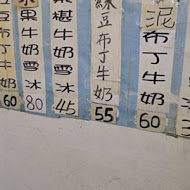 泥布丁牛奶 60
綠豆布丁牛奶 55
牛奶雪冰 45
果牛奶雪冰 80
豆布丁牛奶 60